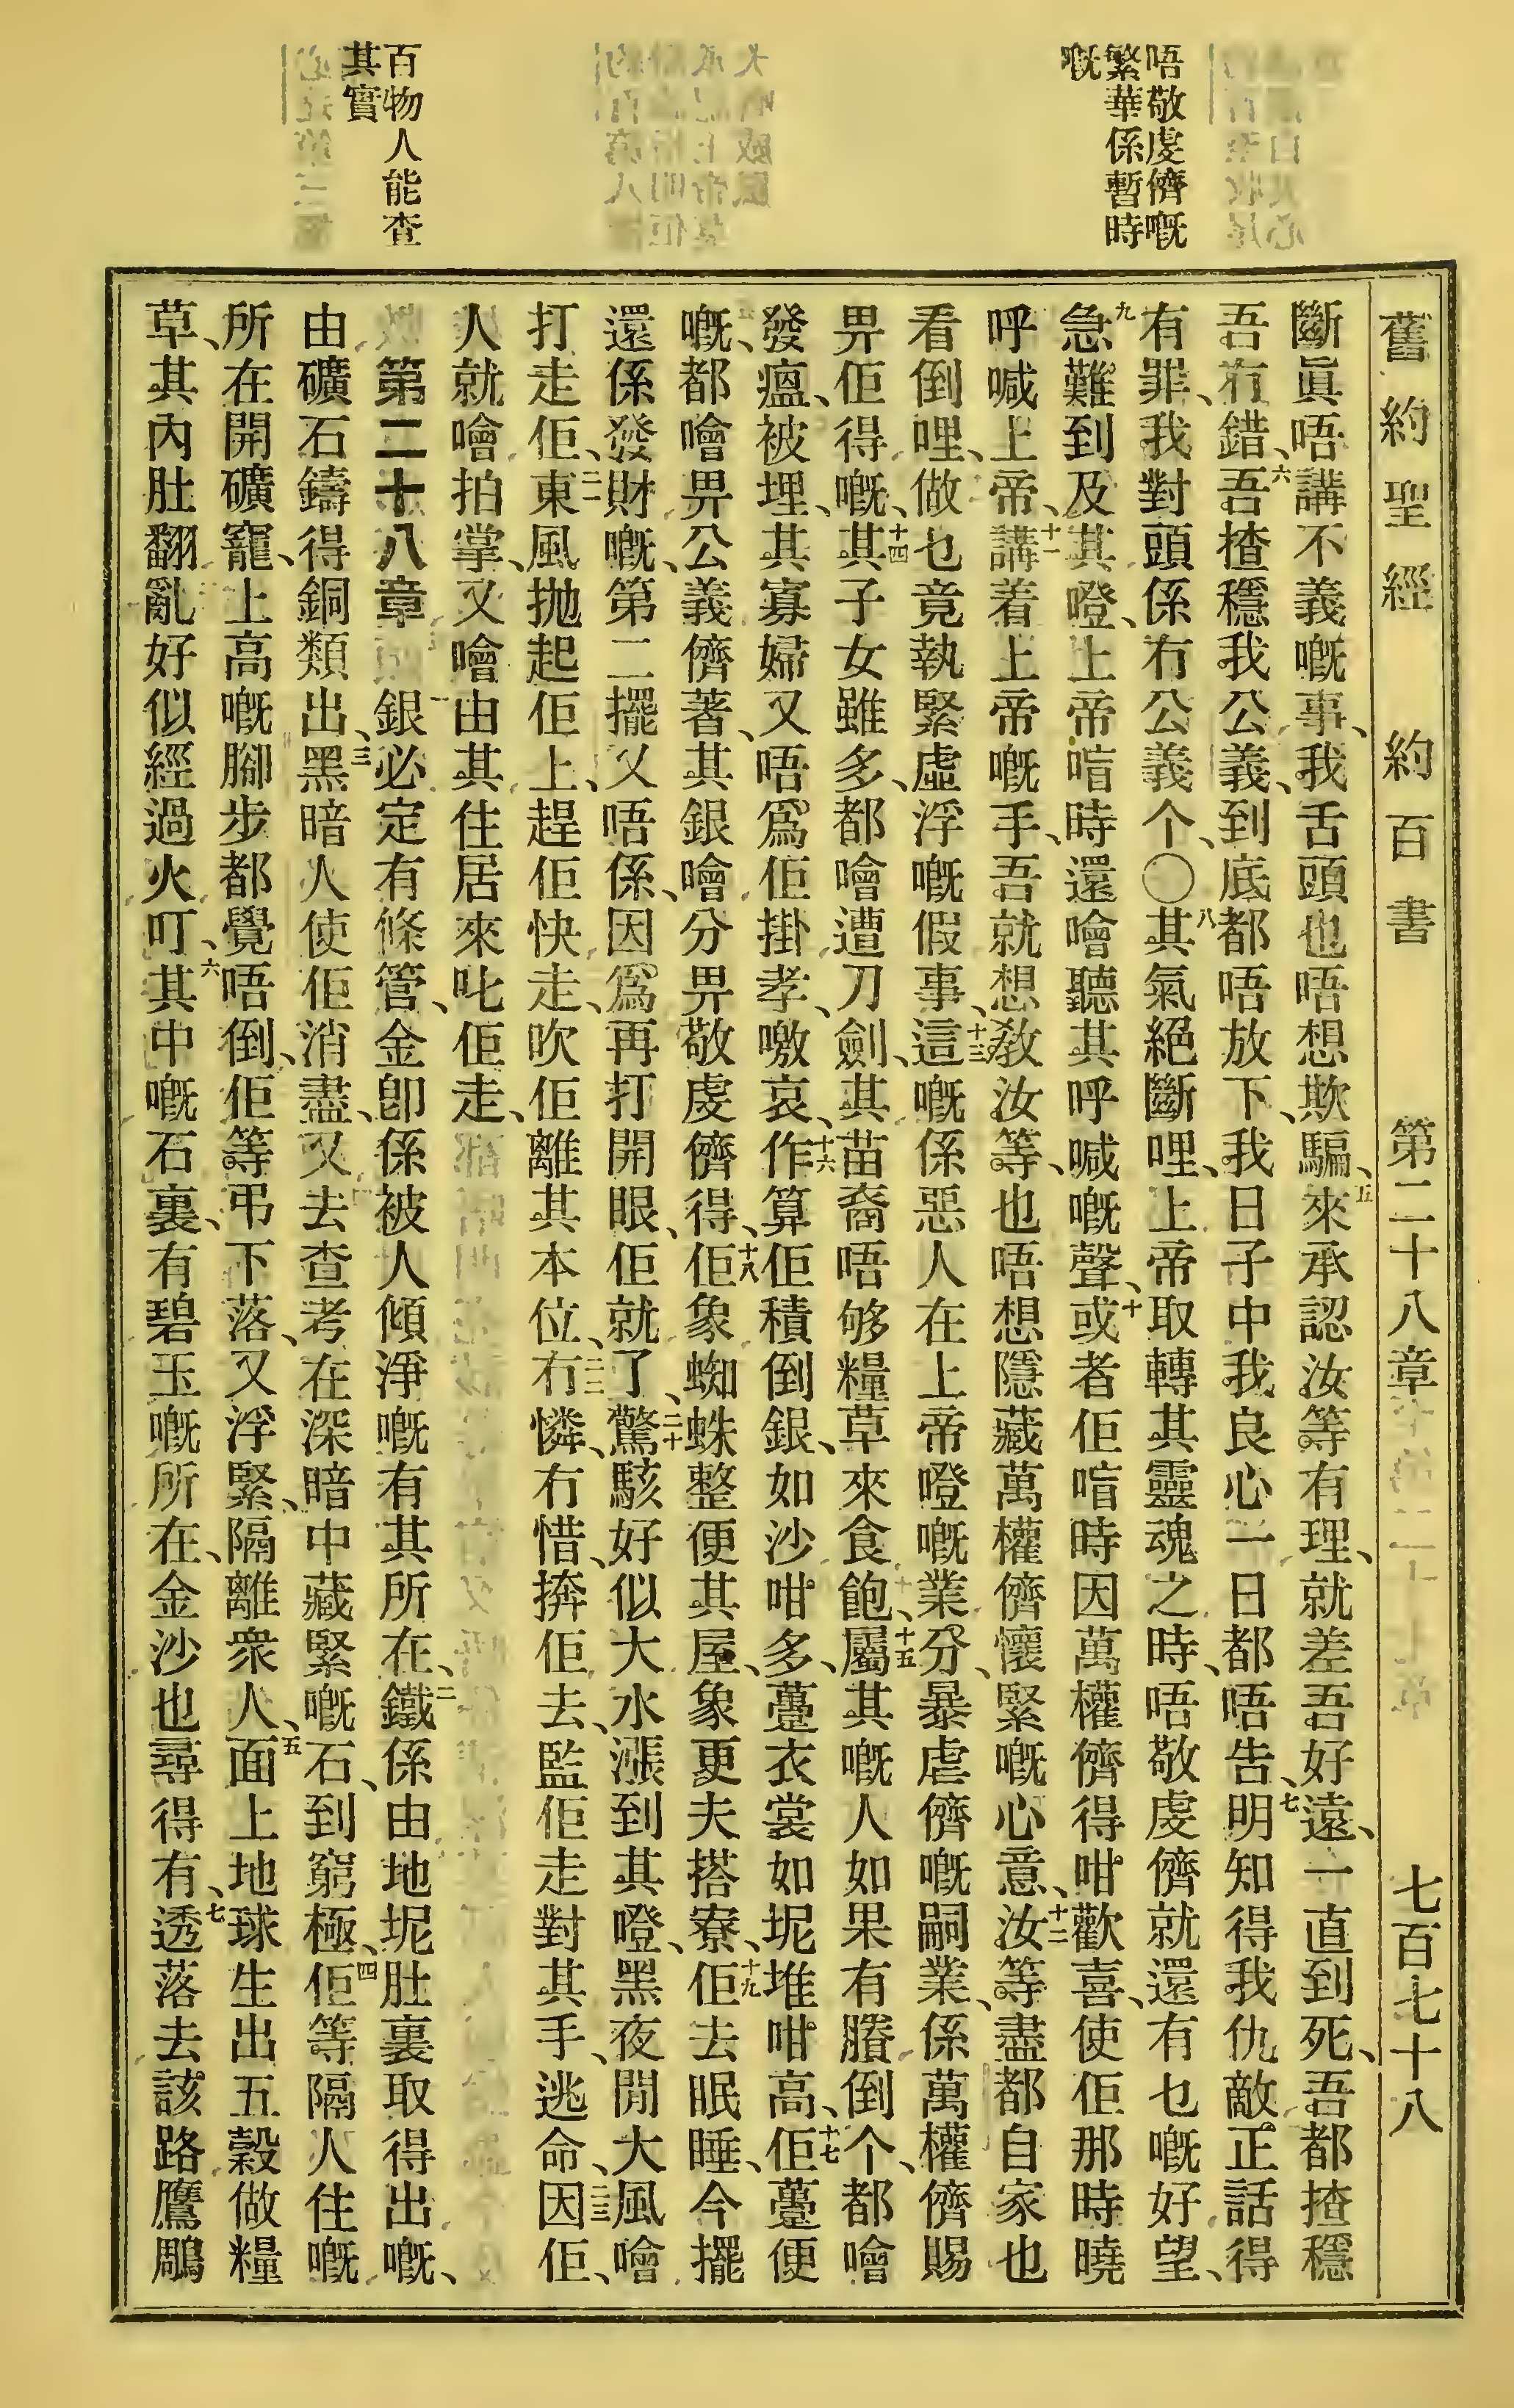 唔敬虔儕嘅
繁華係暫時
嘅
百物人能查
其實
舊約聖經 約百書 第二十八章 七百七十八
斷眞唔講不義嘅事、我舌頭也唔想欺騙、五來承認汝等有理、就差吾好遠、一直到死、吾都揸穩
吾冇錯、六吾揸穩我公義、到底都唔放下、我日子中我良心一日都唔告、七明知得我仇敵正話得
有罪、我對頭係冇公義个、〇八其氣絕斷哩、上帝取轉其靈魂之時、唔敬虔儕就還有乜嘅好望、
九急難到及其噔、上帝㖓時還噲聽其呼喊嘅聲、十或者佢㖓時因萬權儕得咁歡喜、使佢那時曉
呼喊上帝、十一講着上帝嘅手、吾就想敎汝等、也唔想隱藏萬權儕懷緊嘅心意、十二汝等盡都自家也
看倒哩、做乜竟執緊虛浮嘅假事、十三這嘅係惡人在上帝噔嘅業分、暴虐儕嘅嗣業、係萬權儕賜
畀佢得嘅、十四其子女雖多、都噲遭刀劍、其苗裔唔够糧草來食飽、十五屬其嘅人如果有賸倒个、都噲
發瘟、被埋、其寡婦又唔爲佢掛孝、噭哀、十六作算佢積倒銀、如沙咁多、躉衣裳如坭堆咁高、十七佢躉便
嘅、都噲畀公義儕著、其銀噲分畀敬虔儕得、十八佢象蜘蛛整便其屋、象更夫搭寮、十九佢去眠睡、今擺
還係發財嘅、第二擺又唔係、因爲再打開眼、佢就了、二十驚駭好似大水漲到其噔、黑夜閒大風噲
打走佢、二一東風拋起佢上、趕佢快走、吹佢離其本位、二二冇憐、冇惜、捹佢去、監佢走對其手、逃命、二三因佢、
人就噲拍掌、又噲由其住居來叱佢走、
第二十八章 一銀必定有條管、金卽係被人傾淨嘅有其所在、二鐵係由地坭肚裏取得出嘅、
由礦石鑄得銅類出、三黑暗人使佢消盡、又去查考在深暗中藏緊嘅石、到窮極、四佢等隔人住嘅
所在開礦竉、上高嘅腳步都覺唔倒、佢等弔下落、又浮緊、隔離衆人、五面上地球生出五穀做糧
草、其內肚翻亂好似經過火叮、六其中嘅石裏、有碧玉嘅所在、金沙也尋得有、七透落去該路鷹鵰